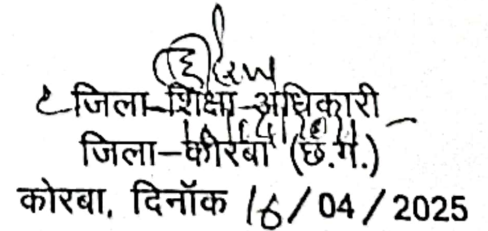 जिला-शिक्षा-अधिकारी
जिला-कोरबा (छ.ग.)
कोरबा, दिनॉक 16/04/2025